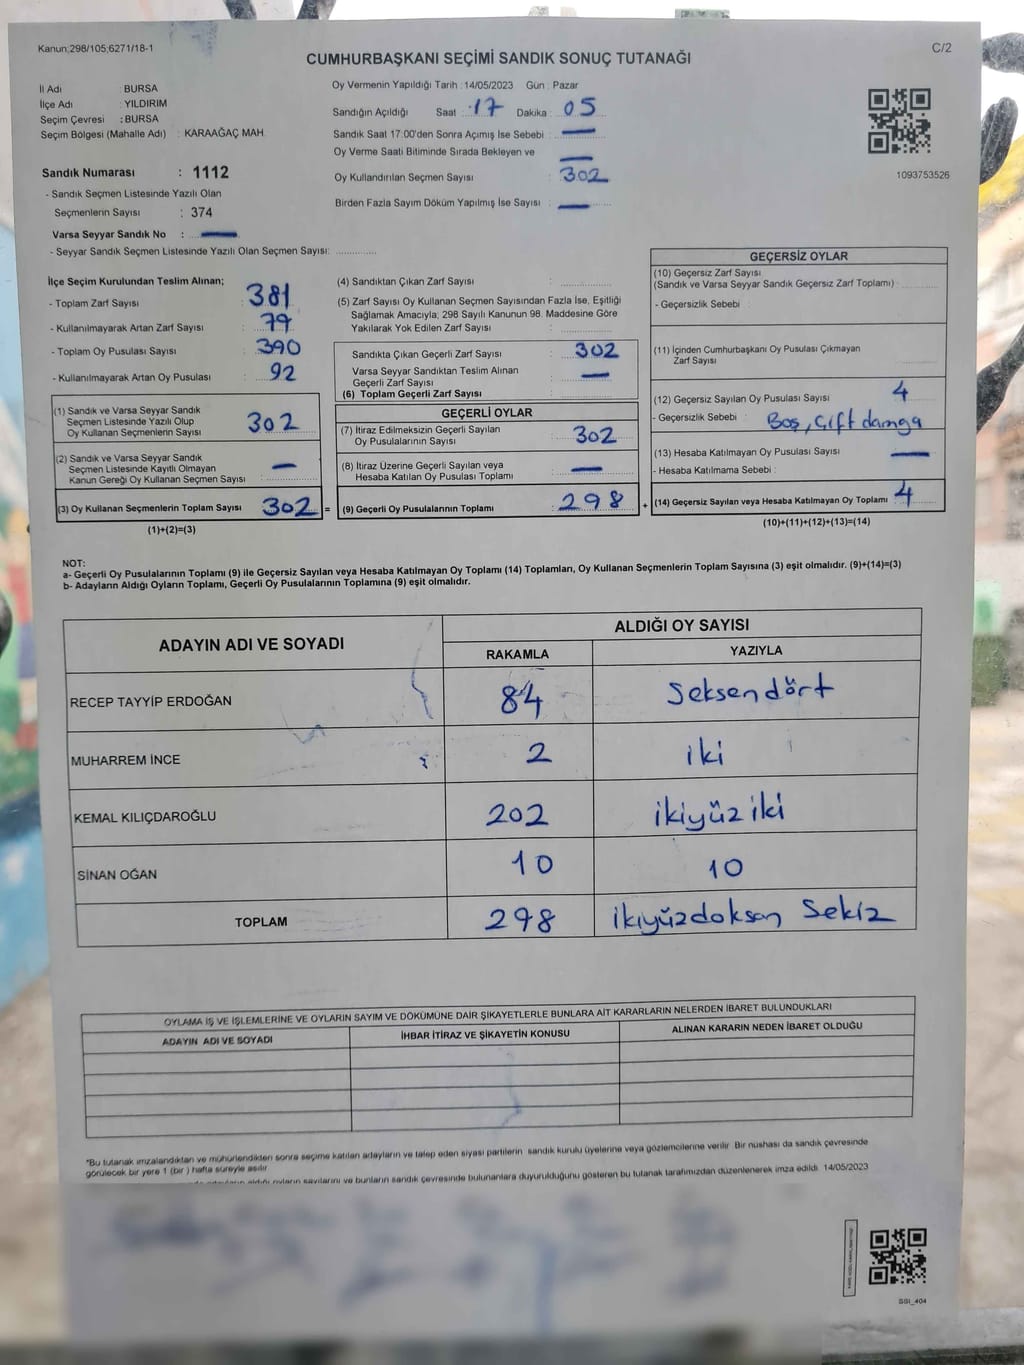 Kanun;298/105;6271/18-1
C/2
CUMHURBAŞKANI SEÇİMİ SANDIK SONUÇ TUTANAĞI
İl Adı : BURSA
İlçe Adı : YILDIRIM
Seçim Çevresi : BURSA
Seçim Bölgesi (Mahalle Adı) : KARAAĞAÇ MAH.
Sandık Numarası : 1112
- Sandık Seçmen Listesinde Yazılı Olan
Seçmenlerin Sayısı : 374
Varsa Seyyar Sandık No : —
- Seyyar Sandık Seçmen Listesinde Yazılı Olan Seçmen Sayısı:
Oy Vermenin Yapıldığı Tarih : 14/05/2023 Gün : Pazar
Sandığın Açıldığı Saat : 17 Dakika : 05
Sandık Saat 17:00'den Sonra Açımış İse Sebebi : —
Oy Verme Saati Bitiminde Sırada Bekleyen ve —
Oy Kullandırılan Seçmen Sayısı : 302
Birden Fazla Sayım Döküm Yapılmış İse Sayısı : —
1093753526
İlçe Seçim Kurulundan Teslim Alınan;
- Toplam Zarf Sayısı : 381
- Kullanılmayarak Artan Zarf Sayısı : 79
- Toplam Oy Pusulası Sayısı : 390
- Kullanılmayarak Artan Oy Pusulası : 92
(1) Sandık ve Varsa Seyyar Sandık
Seçmen Listesinde Yazılı Olup
Oy Kullanan Seçmenlerin Sayısı : 302
(2) Sandık ve Varsa Seyyar Sandık
Seçmen Listesinde Kayıtlı Olmayan
Kanun Gereği Oy Kullanan Seçmen Sayısı : —
(3) Oy Kullanan Seçmenlerin Toplam Sayısı 302 =
(1)+(2)=(3)
(4) Sandıktan Çıkan Zarf Sayısı :
(5) Zarf Sayısı Oy Kullanan Seçmen Sayısından Fazla İse, Eşitliği
Sağlamak Amacıyla; 298 Sayılı Kanunun 98. Maddesine Göre
Yakılarak Yok Edilen Zarf Sayısı :
Sandıkta Çıkan Geçerli Zarf Sayısı : 302
Varsa Seyyar Sandıktan Teslim Alınan
Geçerli Zarf Sayısı : —
(6) Toplam Geçerli Zarf Sayısı :
GEÇERLİ OYLAR
(7) İtiraz Edilmeksizin Geçerli Sayılan
Oy Pusulalarının Sayısı : 302
(8) İtiraz Üzerine Geçerli Sayılan veya
Hesaba Katılan Oy Pusulası Toplamı : —
(9) Geçerli Oy Pusulalarının Toplamı : 298 +
GEÇERSİZ OYLAR
(10) Geçersiz Zarf Sayısı
(Sandık ve Varsa Seyyar Sandık Geçersiz Zarf Toplamı) :
- Geçersizlik Sebebi :
(11) İçinden Cumhurbaşkanı Oy Pusulası Çıkmayan
Zarf Sayısı :
(12) Geçersiz Sayılan Oy Pusulası Sayısı : 4
- Geçersizlik Sebebi : Boş, Çift damga
(13) Hesaba Katılmayan Oy Pusulası Sayısı : —
- Hesaba Katılmama Sebebi :
(14) Geçersiz Sayılan veya Hesaba Katılmayan Oy Toplamı : 4
(10)+(11)+(12)+(13)=(14)
NOT:
a- Geçerli Oy Pusulalarının Toplamı (9) ile Geçersiz Sayılan veya Hesaba Katılmayan Oy Toplamı (14) Toplamları, Oy Kullanan Seçmenlerin Toplam Sayısına (3) eşit olmalıdır. (9)+(14)=(3)
b- Adayların Aldığı Oyların Toplamı, Geçerli Oy Pusulalarının Toplamına (9) eşit olmalıdır.
ADAYIN ADI VE SOYADI ALDIĞI OY SAYISI
RAKAMLA YAZIYLA
RECEP TAYYİP ERDOĞAN 84 Seksendört
MUHARREM İNCE 2 iki
KEMAL KILIÇDAROĞLU 202 ikiyüz iki
SİNAN OĞAN 10 10
TOPLAM 298 ikiyüzdoksan Sekiz
OYLAMA İŞ VE İŞLEMLERİNE VE OYLARIN SAYIM VE DÖKÜMÜNE DAİR ŞİKAYETLERLE BUNLARA AİT KARARLARIN NELERDEN İBARET BULUNDUKLARI
ADAYIN ADI VE SOYADI İHBAR İTİRAZ VE ŞİKAYETİN KONUSU ALINAN KARARIN NEDEN İBARET OLDUĞU
*Bu tutanak imzalandıktan ve mühürlendikten sonra seçime katılan adayların ve talep eden siyasi partilerin sandık kurulu üyelerine veya gözlemcilerine verilir. Bir nüshası da sandık çevresinde
görülecek bir yere 1 (bir) hafta süreyle asılır.
adayların aldığı oyların sayılarını ve bunların sandık çevresinde bulunanlara duyurulduğunu gösteren bu tutanak tarafımızdan düzenlenerek imza edildi. 14/05/2023